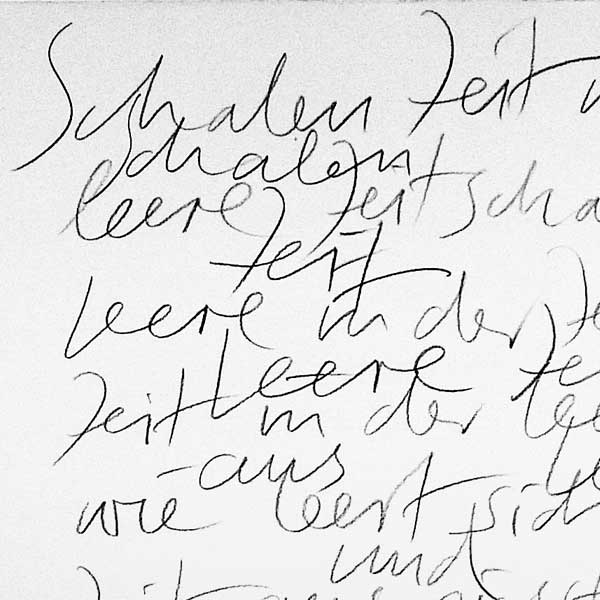 Schalen Zeit
Schalen
leere Zeitscha
Zeit
leere in der Ze
leere Ze
Zeit in der lee
aus le
wie leert sich
und